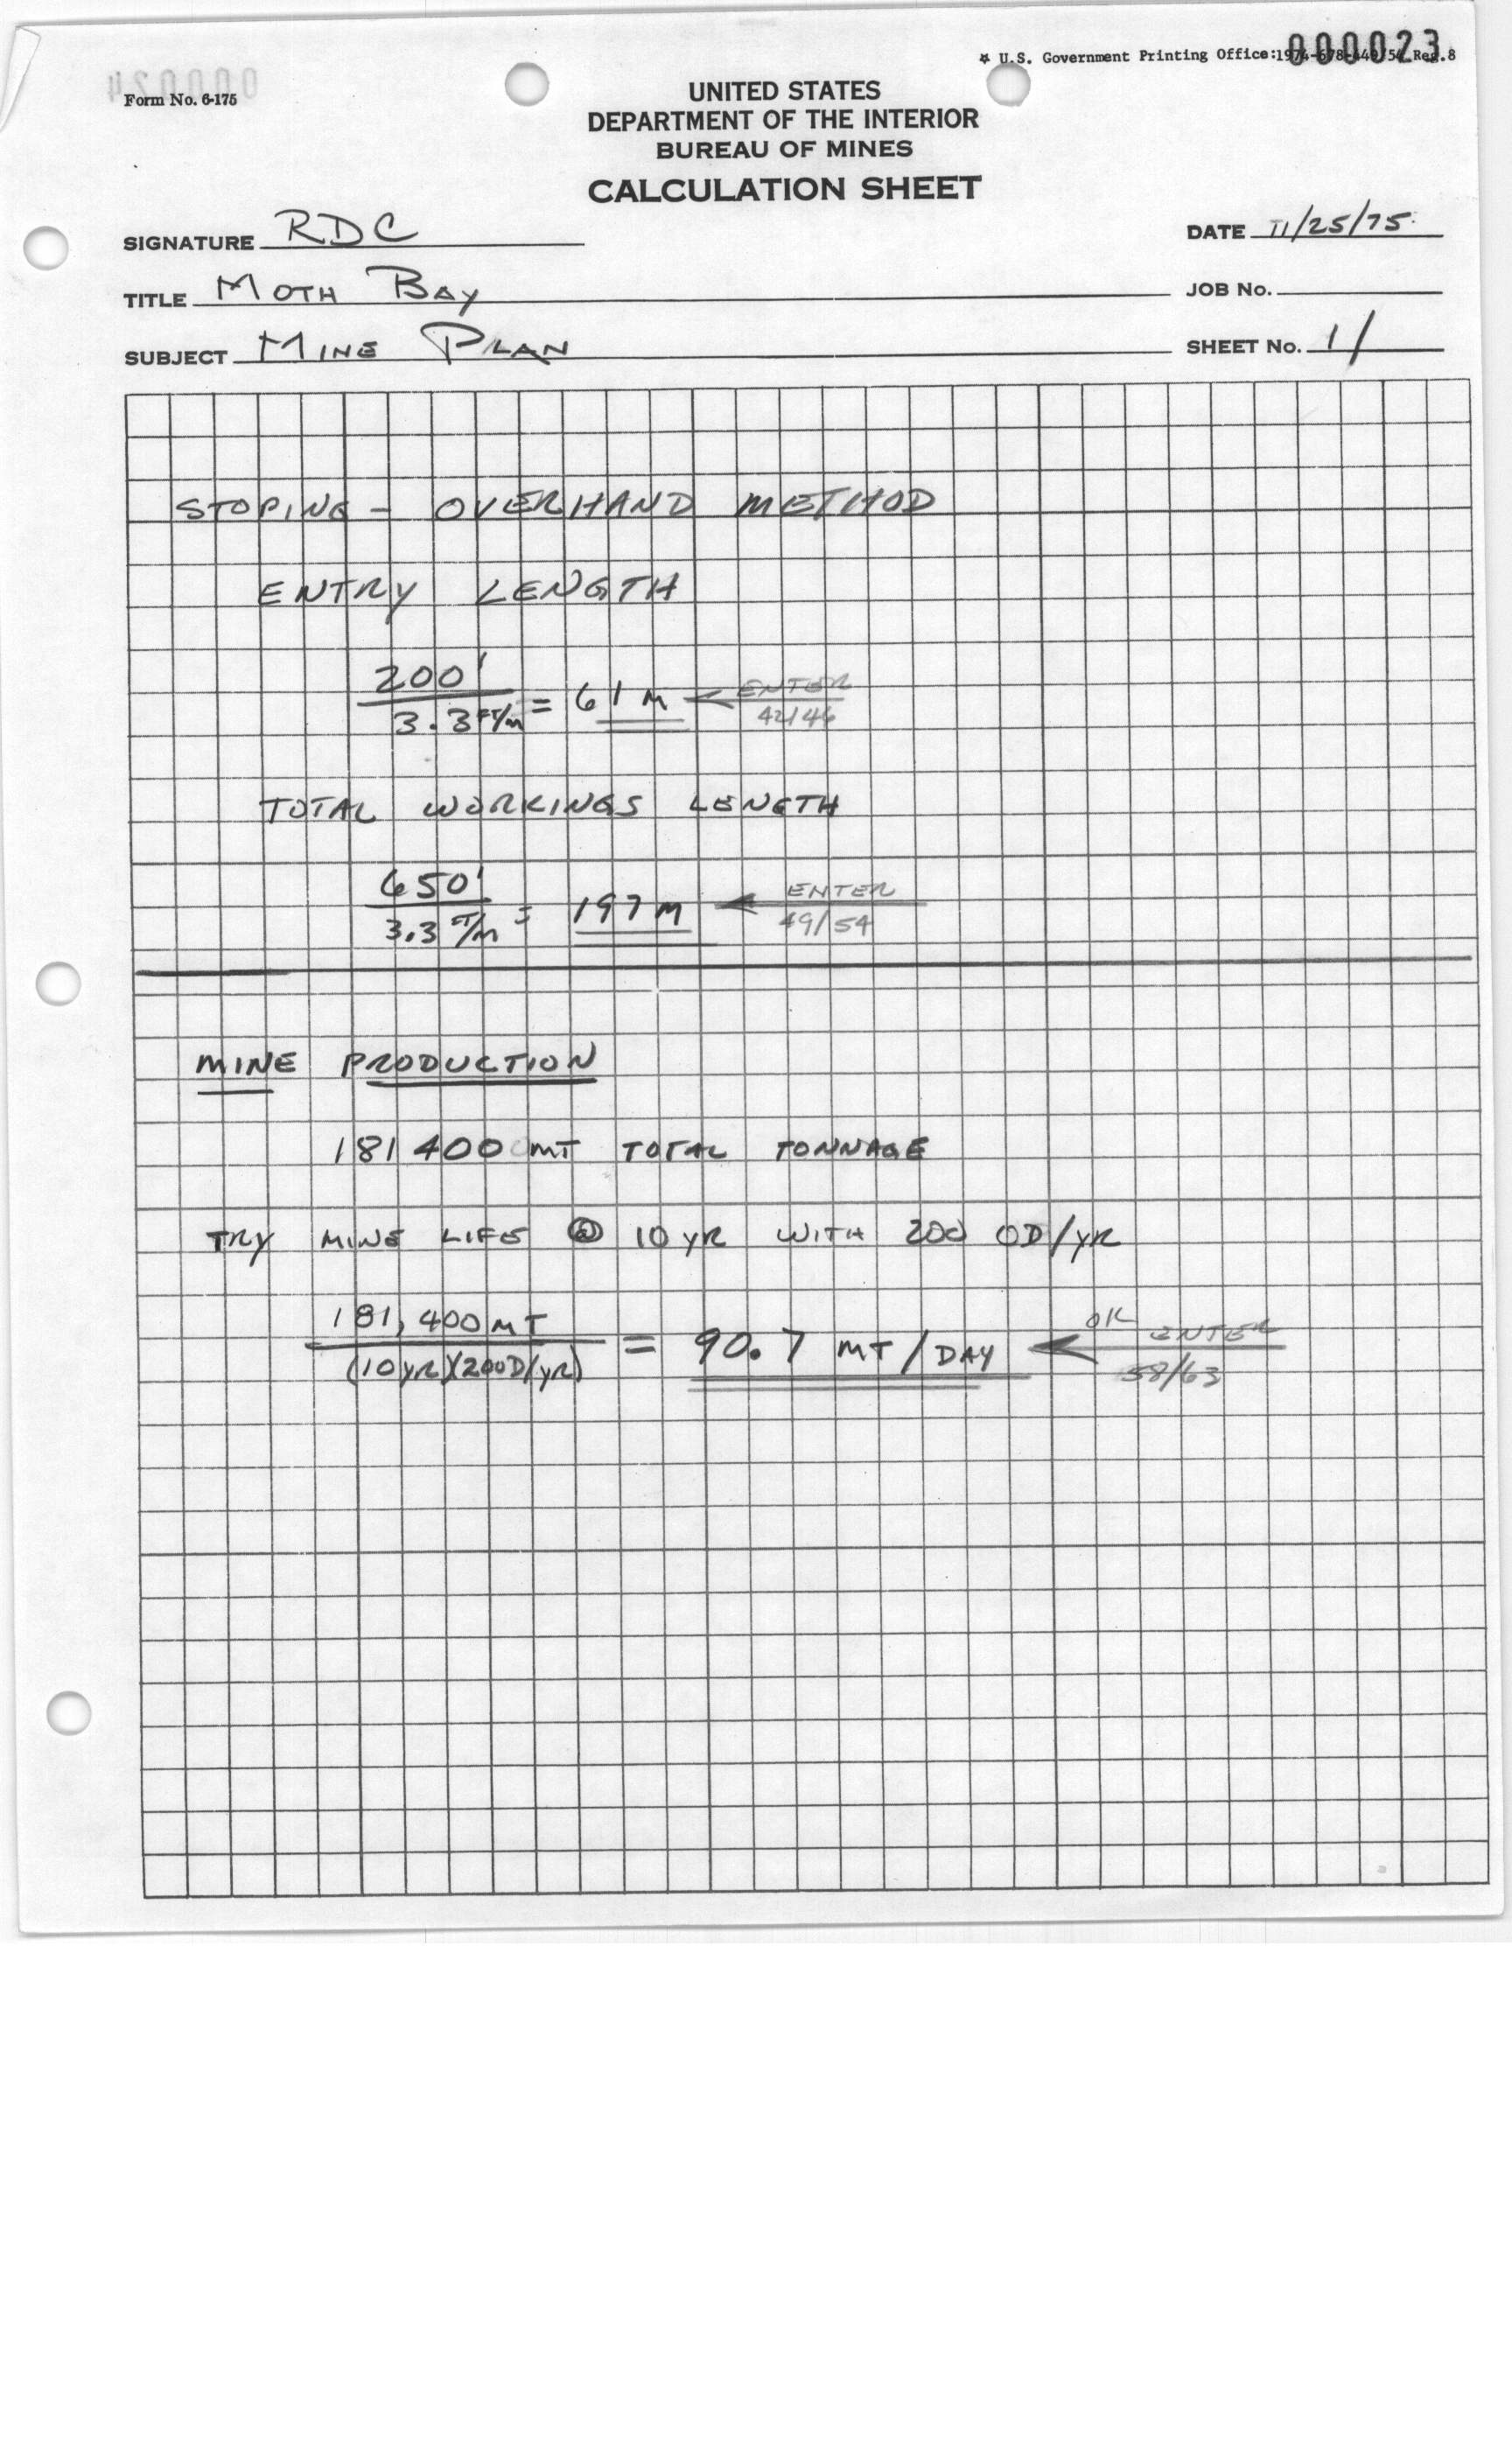 000023
* U.S. Government Printing Office:1974-678-440/54 Reg.8
Form No. 6-175
UNITED STATES
DEPARTMENT OF THE INTERIOR
BUREAU OF MINES
CALCULATION SHEET
SIGNATURE RDC
DATE 11/25/75
TITLE MOTH BAY
JOB No.
SUBJECT MINE PLAN
SHEET No. 1/
STOPING - OVERHAND METHOD
ENTRY LENGTH
200'
3.3 FT/M = 61 M ← ENTER
42/46
TOTAL WORKINGS LENGTH
650'
3.3 FT/M = 197 M ← ENTER
49/54
MINE PRODUCTION
181400 MT TOTAL TONNAGE
TRY MINE LIFE @ 10 YR WITH 200 OD/YR
181,400 MT
(10 YR)(200D/YR) = 90.7 MT/DAY ← OK ENTER
58/63